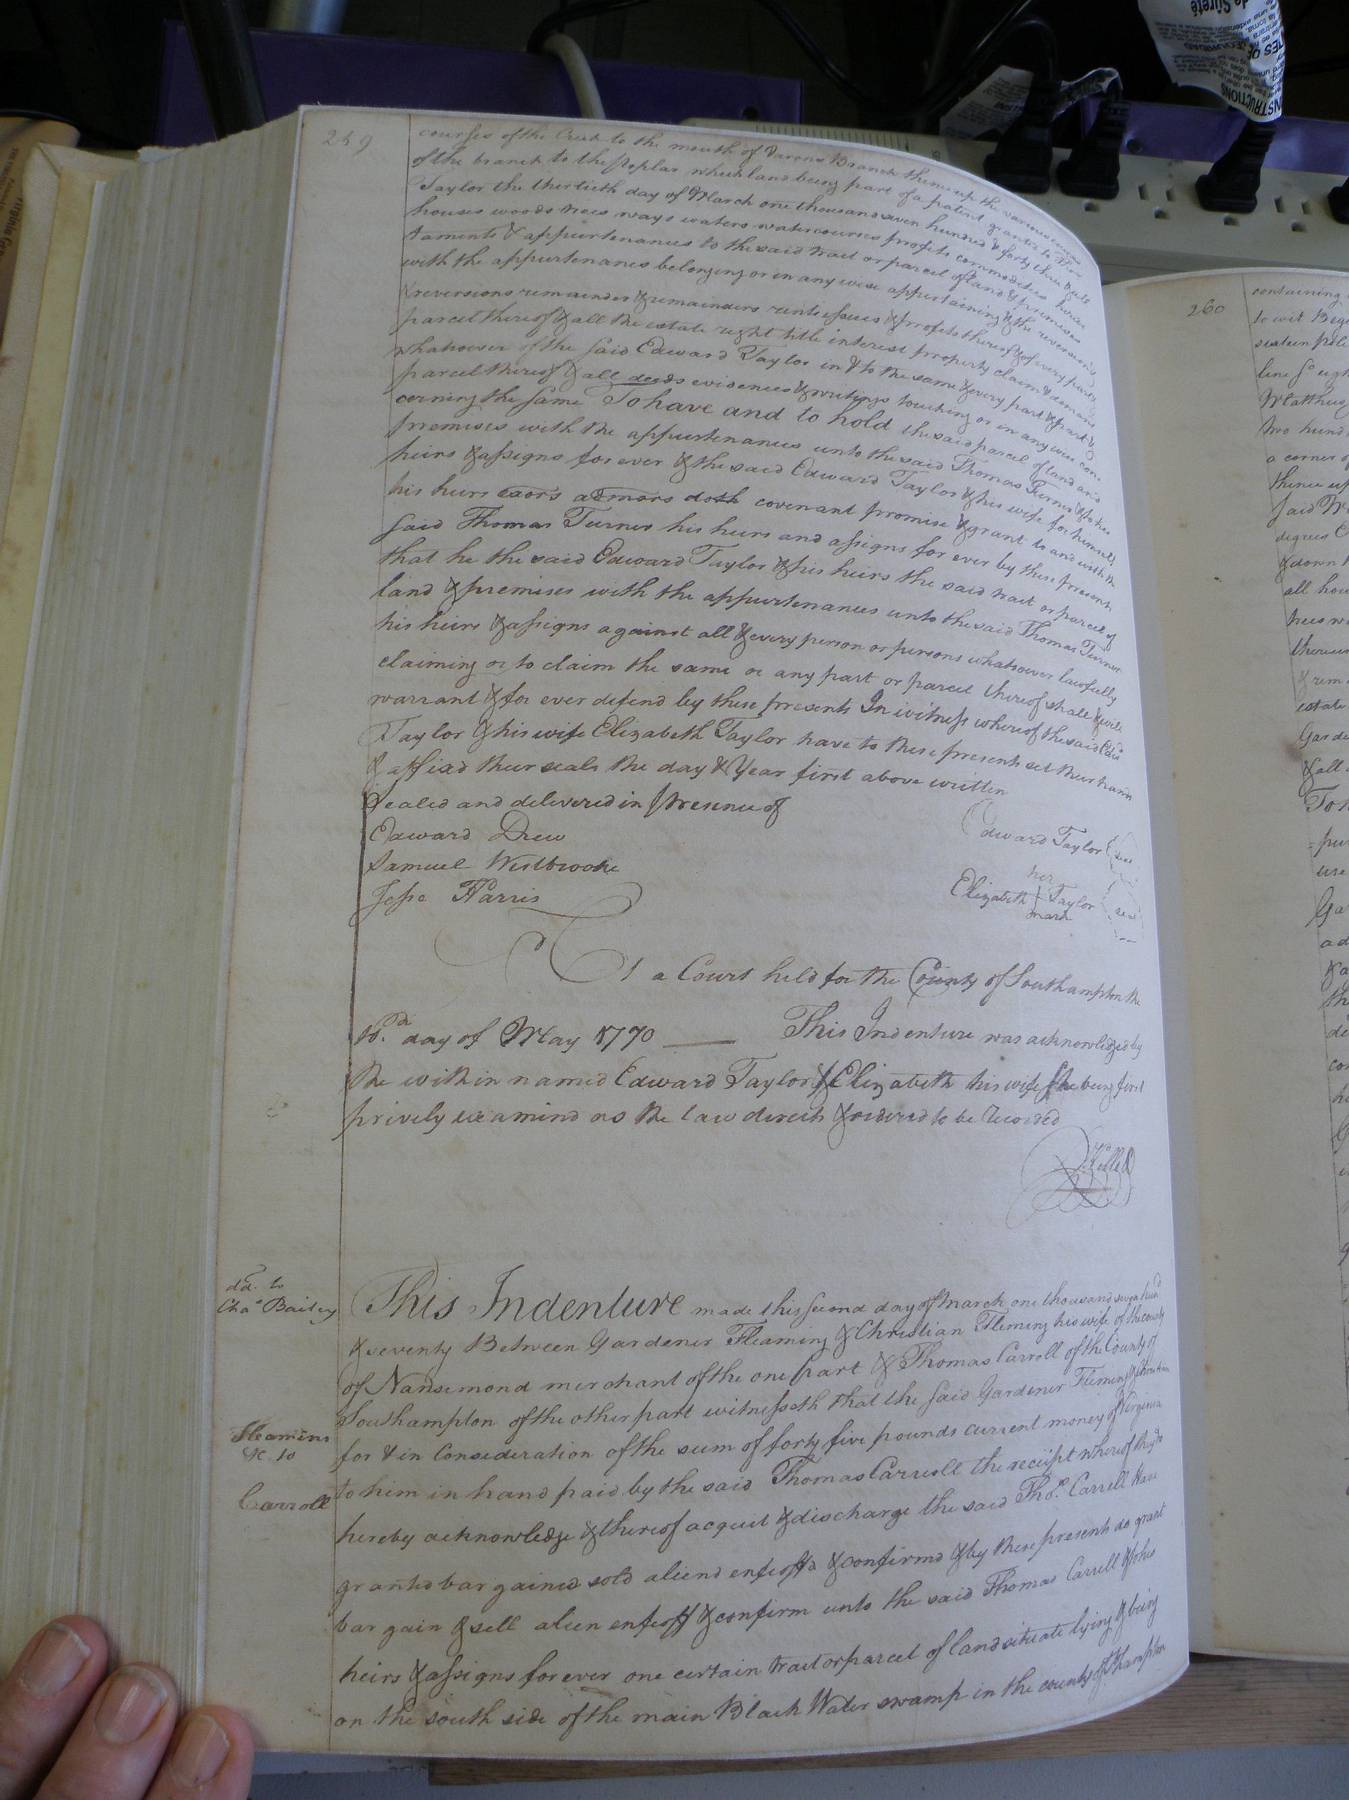 259
courses of the Creek to the mouth of Branch thence up the various courses
of the branch to the poplar which land being part of a patent granted to
Taylor the thirtieth day of March one thousand seven hundred & forty three & all
houses woods trees ways waters watercourses profits commodities heredi
taments & appurtenances to the said tract or parcel of land & premises
with the appurtenances belonging or in any wise appertaining & the reversion
& reversions remainder & remainders rents issues & profits thereof & of every part &
parcel thereof & all the estate right title interest property claim & demand
whatsoever of the said Edward Taylor in & to the same & every part & part &
parcel thereof & all deeds evidences & writings touching or in any wise con
cerning the same To have and to hold the said parcel of land and
premises with the appurtenances unto the said Thomas Turner & to his
heirs & assigns for ever & the said Edward Taylor & his wife for himself
his heirs exors admors doth covenant promise & grant to and with the
said Thomas Turner his heirs and assigns for ever by these presents
that he the said Edward Taylor & his heirs the said tract or parcel of
land & premises with the appurtenances unto the said Thomas Turner
his heirs & assigns against all & every person or persons whatsoever lawfully
claiming or to claim the same or any part or parcel thereof shall & will
warrant & for ever defend by these presents In witness whereof the said Edwd
Taylor & his wife Elizabeth Taylor have to these presents set their hands
& affixd their seals the day & Year first above written
Sealed and delivered in presence of
Edward Drew
Samuel Westbrooke
Jesse Harris
Edward Taylor (seal)
her
Elizabeth Taylor (seal)
mark
At a Court held for the County of Southampton the
10th day of May 1770 This Indenture was acknowledged by
the within named Edward Taylor & Elizabeth his wife She being first
privily examind as the law directs & ordered to be recorded
dd. to
Chas Bailey
This Indenture made this second day of March one thousand seven hund
& seventy Between Gardener Fleaming & Christian Fleming his wife of the county
of Nansemond merchant of the one part & Thomas Carroll of the County of
Southampton of the other part witnesseth that the said Gardener Fleming & Christian
Fleaming
&c to
Carroll
for & in Consideration of the sum of forty five pounds current money of Virginia
to him in hand paid by the said Thomas Carrell the receipt whereof they do
hereby acknowledge & thereof acquit & discharge the said Thos. Carrell Have
granted bargained sold aliend enfeoffd & confirmd & by these presents do grant
bargain & sell alien enfeoff & confirm unto the said Thomas Carrell & to his
heirs & assigns for ever one certain tract or parcel of land situate lying & being
on the south side of the main Black Water swamp in the county of Sthampton
260
containing
to wit
sixteen pole
line So
Matthew
two hund
a corner of
thence up
said
& down
all hou
trees
thereun
& rem
estate
Garde
& all
To h